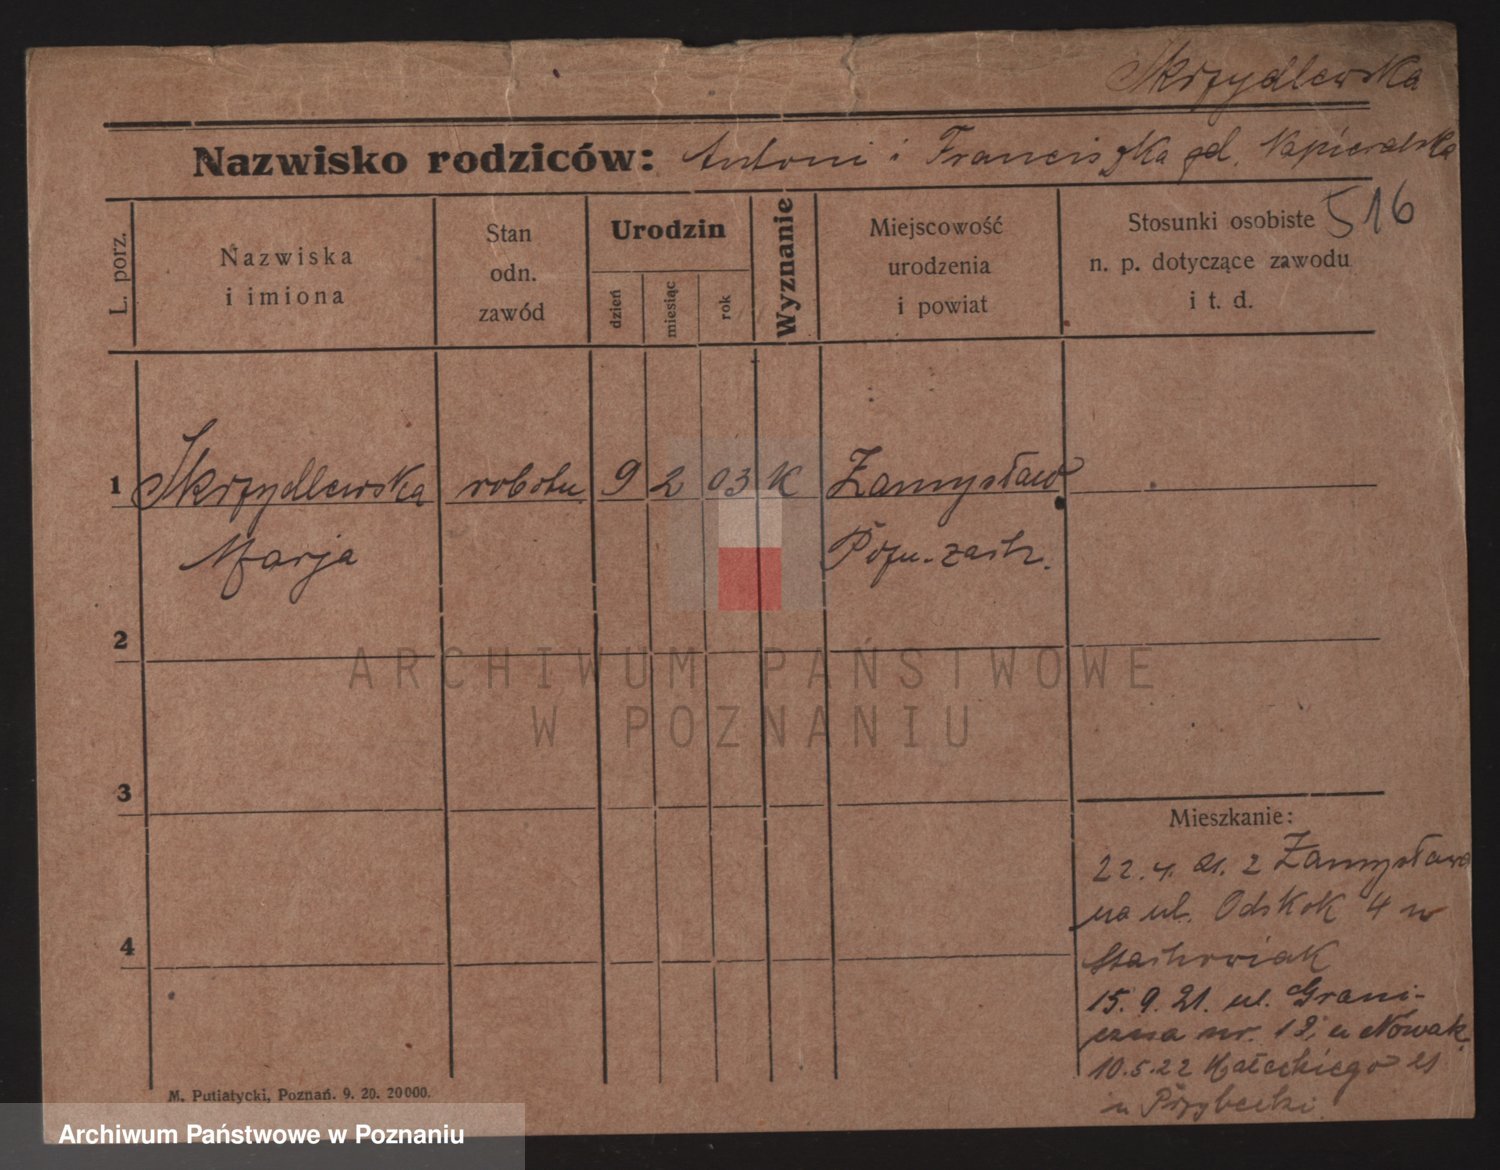 Skrzydlewska
Nazwisko rodziców: Antoni i Franciszka gd. Napieralska
516
L. porz.
Nazwiska
i imiona
Stan
odn.
zawód
Urodzin
dzień
miesiąc
rok
Wyznanie
Miejscowość
urodzenia
i powiat
Stosunki osobiste
n. p. dotyczące zawodu
i t. d.
1 Skrzydlewska robotn 9 2 03 K Zamysław
Marja Pozn. zach.
2
3
4
Mieszkanie:
22.4.21. z Zamysława
na ul. Odskok 4 u
Stachowiak
15.9.21. ul. Grani-
czna nr. 12, u Nowak
10.5.22 Małeckiego 21
u Przybecki
M. Putiatycki, Poznań. 9. 20. 20000.
ARCHIWUM PAŃSTWOWE
W POZNANIU
Archiwum Państwowe w Poznaniu